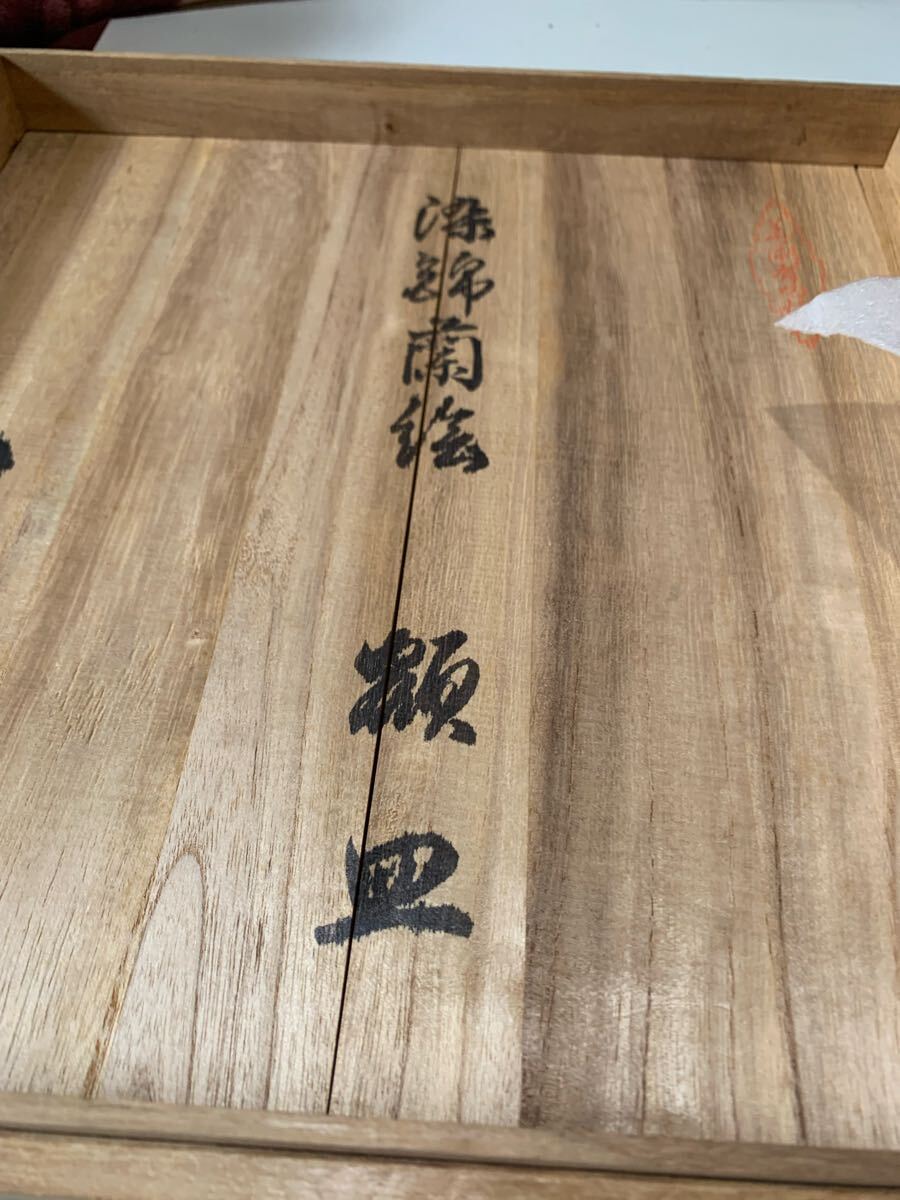 染錦蘭絵 額皿